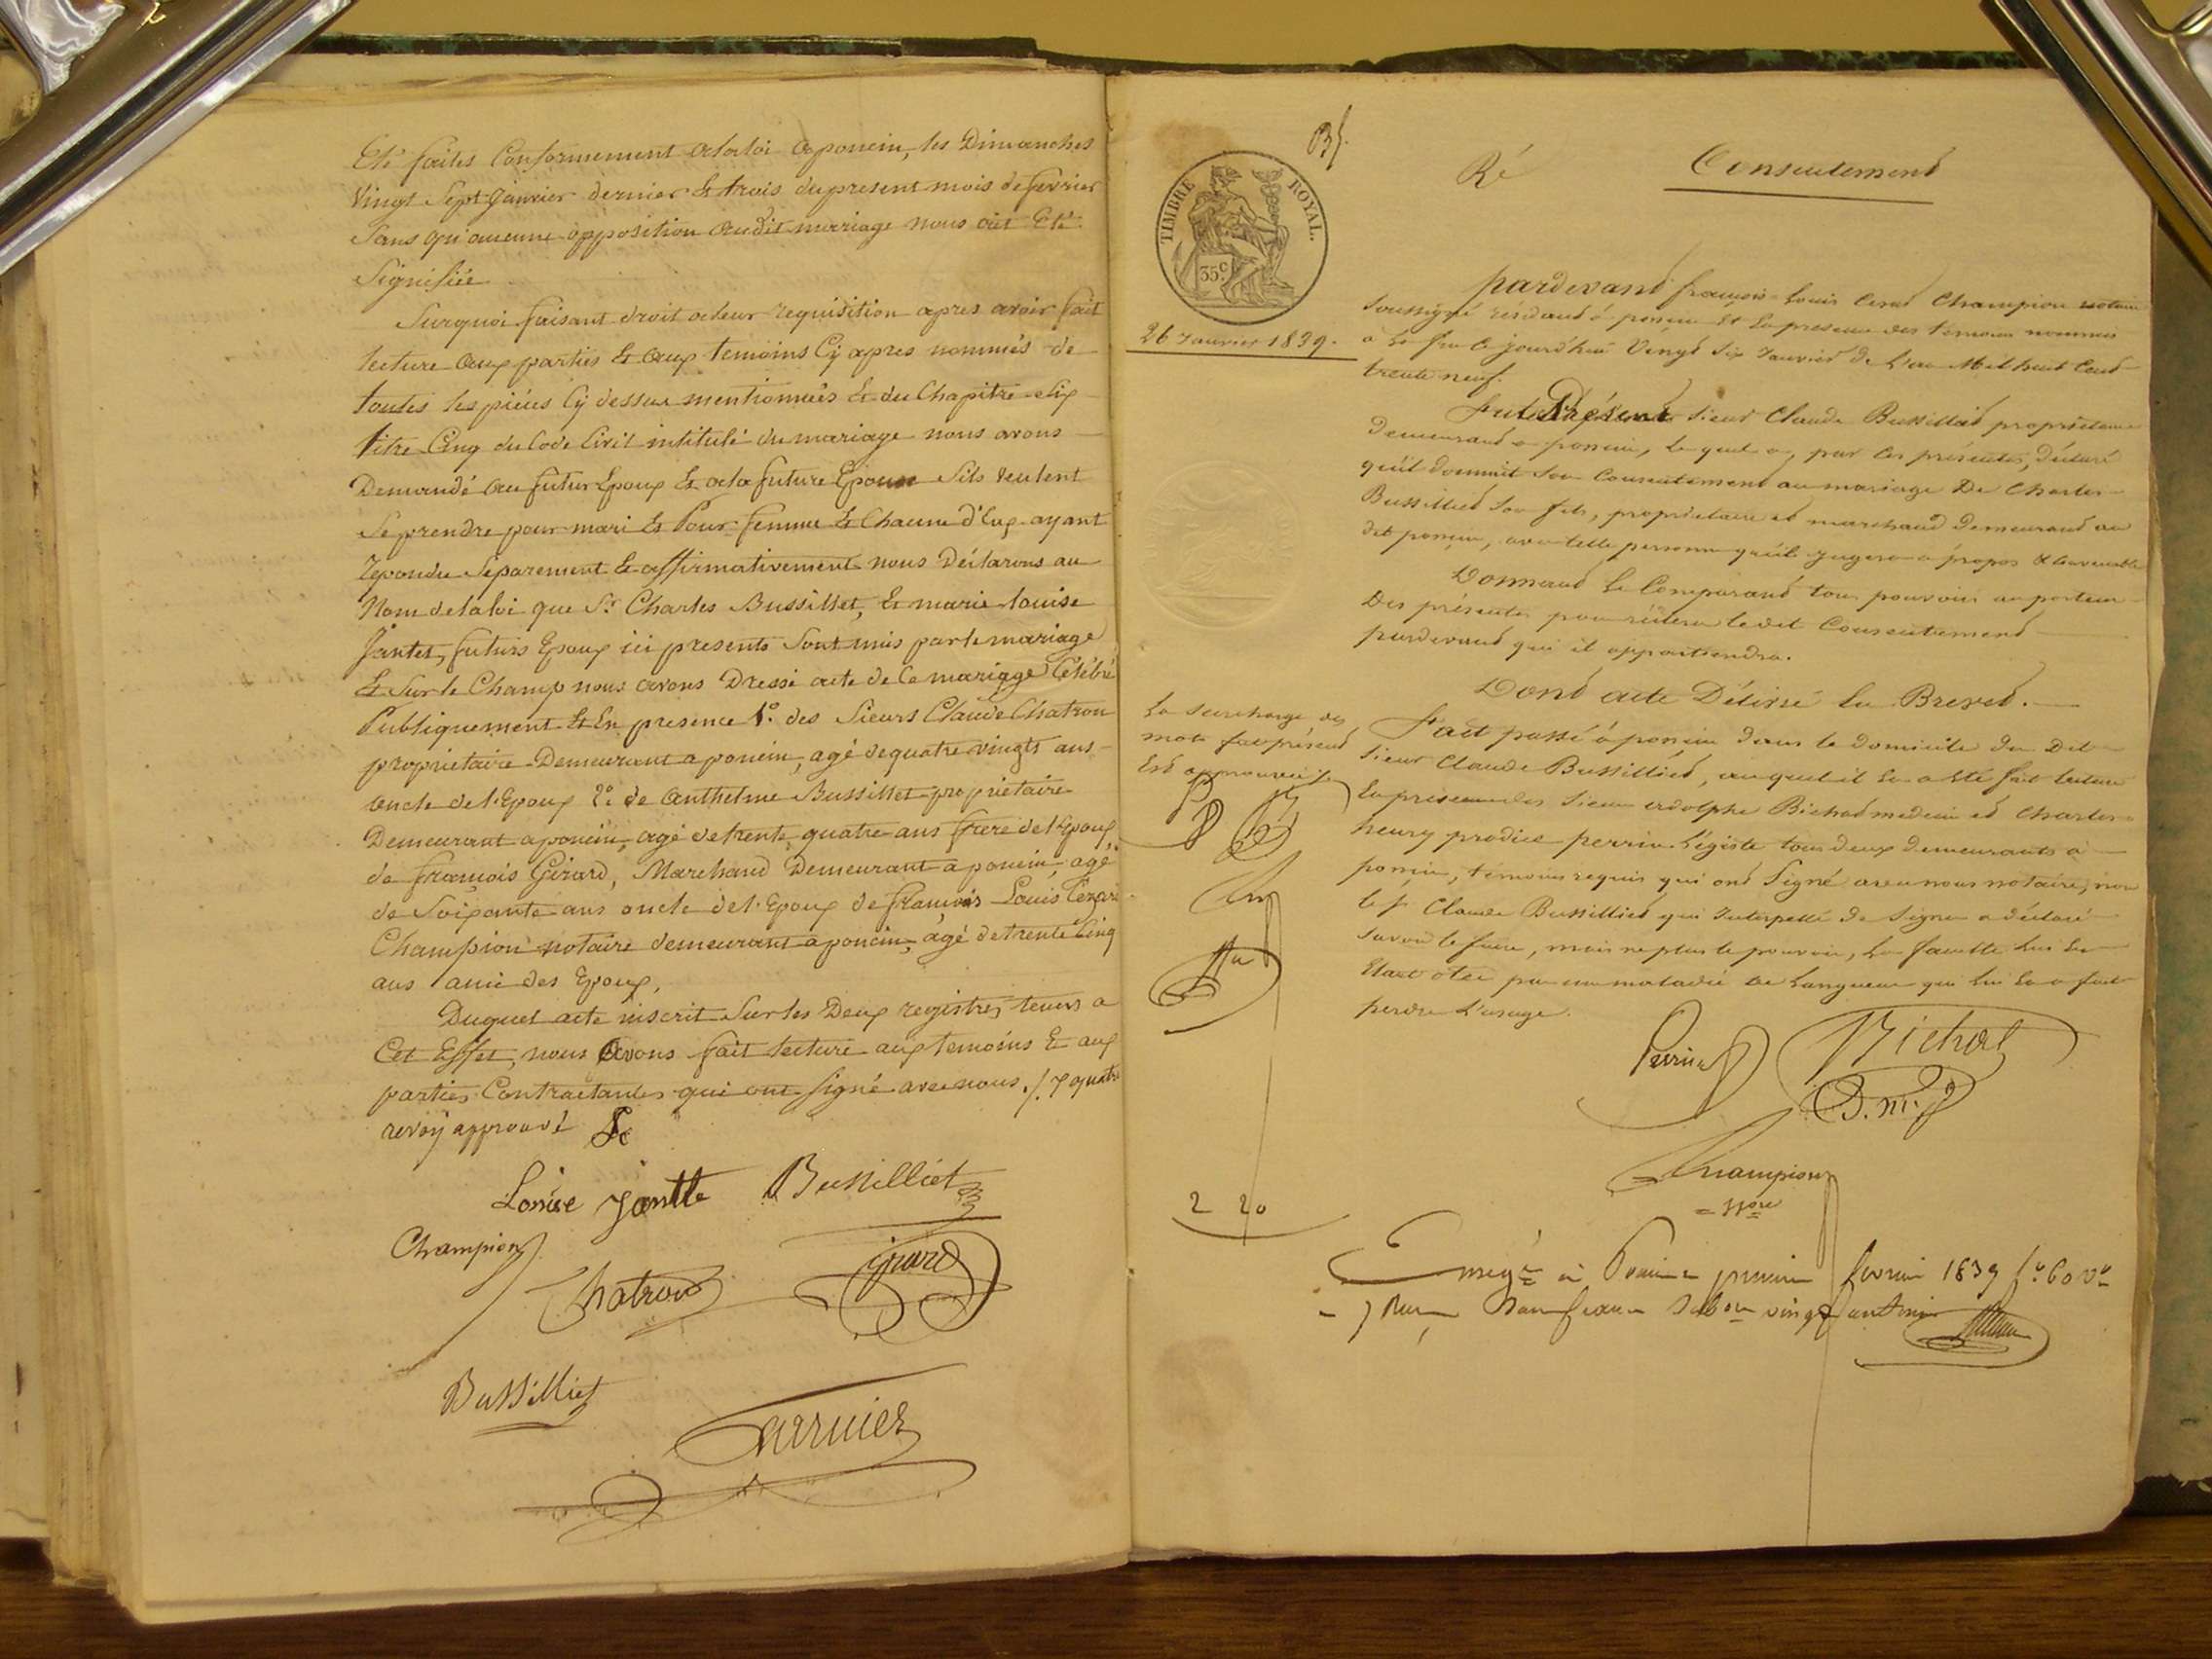 Eté faites Conformement alaloi aponcin, les Dimanches
Vingt Sept Janvier dernier Et trois du present mois de fevrier
Sans qu'aucune opposition audit mariage nous ait Eté
Signifiée
Surquoi faisant droit aleur requisition apres avoir fait
lecture aux parties Et aux temoins Cÿ apres nommés de
toutes les piéces Cÿ dessus mentionnées Et du Chapitre Six
titre Cinq du Code Civil intitulé du mariage nous avons
Demandé au futur Epoux Et ala future Epouse Sils veulent
Se prendre pour mari Et Pour femme Et Chacun d'Eux ayant
repondu Separement Et affirmativement nous Déclarons au
Nom dela loi que Sr Charles Bussillet, Et marie louise
Jantet, futurs Epoux ici presents Sont unis par le mariage
Et Sur le Champ nous avons Dressé acte de Ce mariage Célébré
Publiquement Et En presence 1° des Sieurs Claude Chatron
propriétaire Demeurant a poncin, agé de quatre vingts ans
oncle de l'Epoux 2° de Anthelme Bussillet propriétaire
Demeurant a poncin, agé de trente quatre ans frere de l'Epoux,
de françois Girard, Marchand Demeurant a poncin, agé
de Soixante ans oncle de l'Epoux de francois Louis Cezar
Champion notaire demeurant a poncin, agé de trente Cinq
ans ami des Epoux,
Duquel acte inscrit Sur les Deux registres tenus a
Cet Effet, nous Avons fait lecture aux temoins Et aux
parties Contractantes qui ont Signé avec nous ./. quatre
approuvé
Louise Jantte Bussilliet
Champion
Chatron Girard
Bussilliet
Garnier
TIMBRE ROYAL.
35c
26 Janvier 1839.
Ré Consentement
pardevant françois Louis Cesar Champion notaire
Soussigné résidant à poncin Et En presence des temoins nommés
a La fin Ce jourd'hui Vingt Six Janvier de L'an Mil huit Cent
trente neuf.
fut Présent Sieur Claude Bussilliet propriétaire
Demeurant a poncin, le quel a, par Ces présentes, déclaré
qu'il donnait Son Consentement au mariage De Charles
Bussilliet Son fils, propriétaire et marchand Demeurant au
dit poncin, avec telle personne qu'il jugera a propos & Convenable
Donnant Le Comparant tous pouvoirs au porteur
Des présentes pour réitérer ledit Consentement
pardevant qui il appartiendra.
Dont acte Délivré En Brevet.
Fait passé à poncin dans le domicile du Dit
Sieur Claude Bussilliet, auquel il En a Eté fait lecture
En présence des Sieurs adolphe Bichat medecin et Charles
henry prodice perrin Légiste tous deux demeurants a
poncin, témoins requis qui ont Signé avec nous notaire, non
le Sr Claude Bussilliet qui Interpellé de Signer a déclaré
Savoir le faire, mais ne plus le pouvoir, La faculté Lui En
Etant otée par une maladie de Langueur qui Lui En a fait
perdre L'usage.
La Surcharge des
mots fut présent
Est approuvée
Perrin Bichat
D. m. p
Champion
Nore
2 20
Enregé à Poncin premier fevrier 1839 fo 60 vo